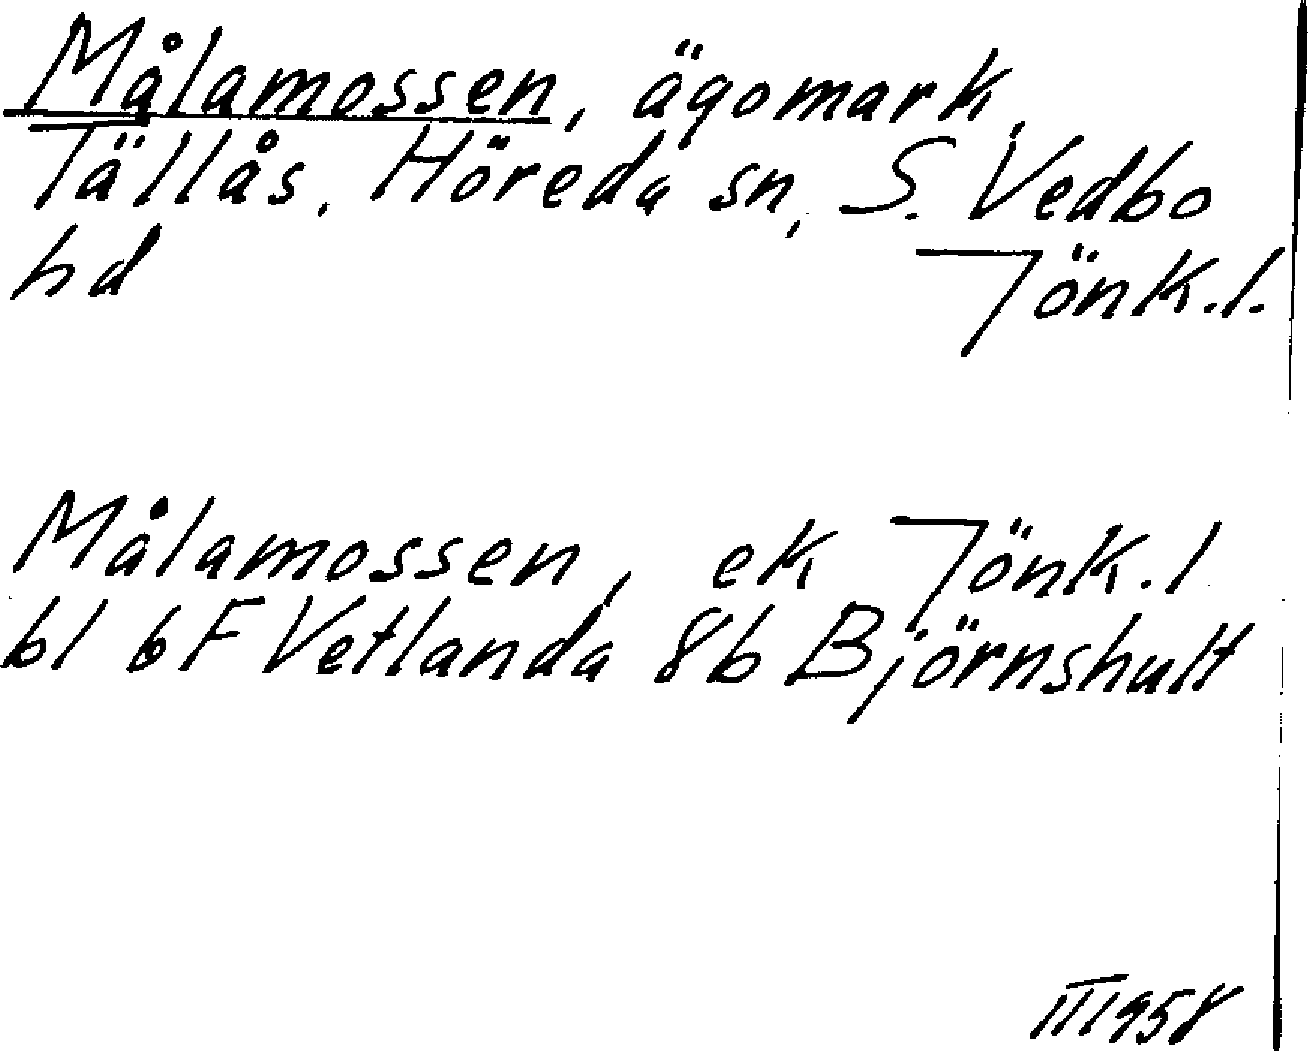 Målamossen, ägomark,
Tällås, Höreda sn, S. Vedbo
hd Jönk.l.
Målamossen, ek Jönk.l
bl 6F Vetlanda 8b Björnshult
III 1958